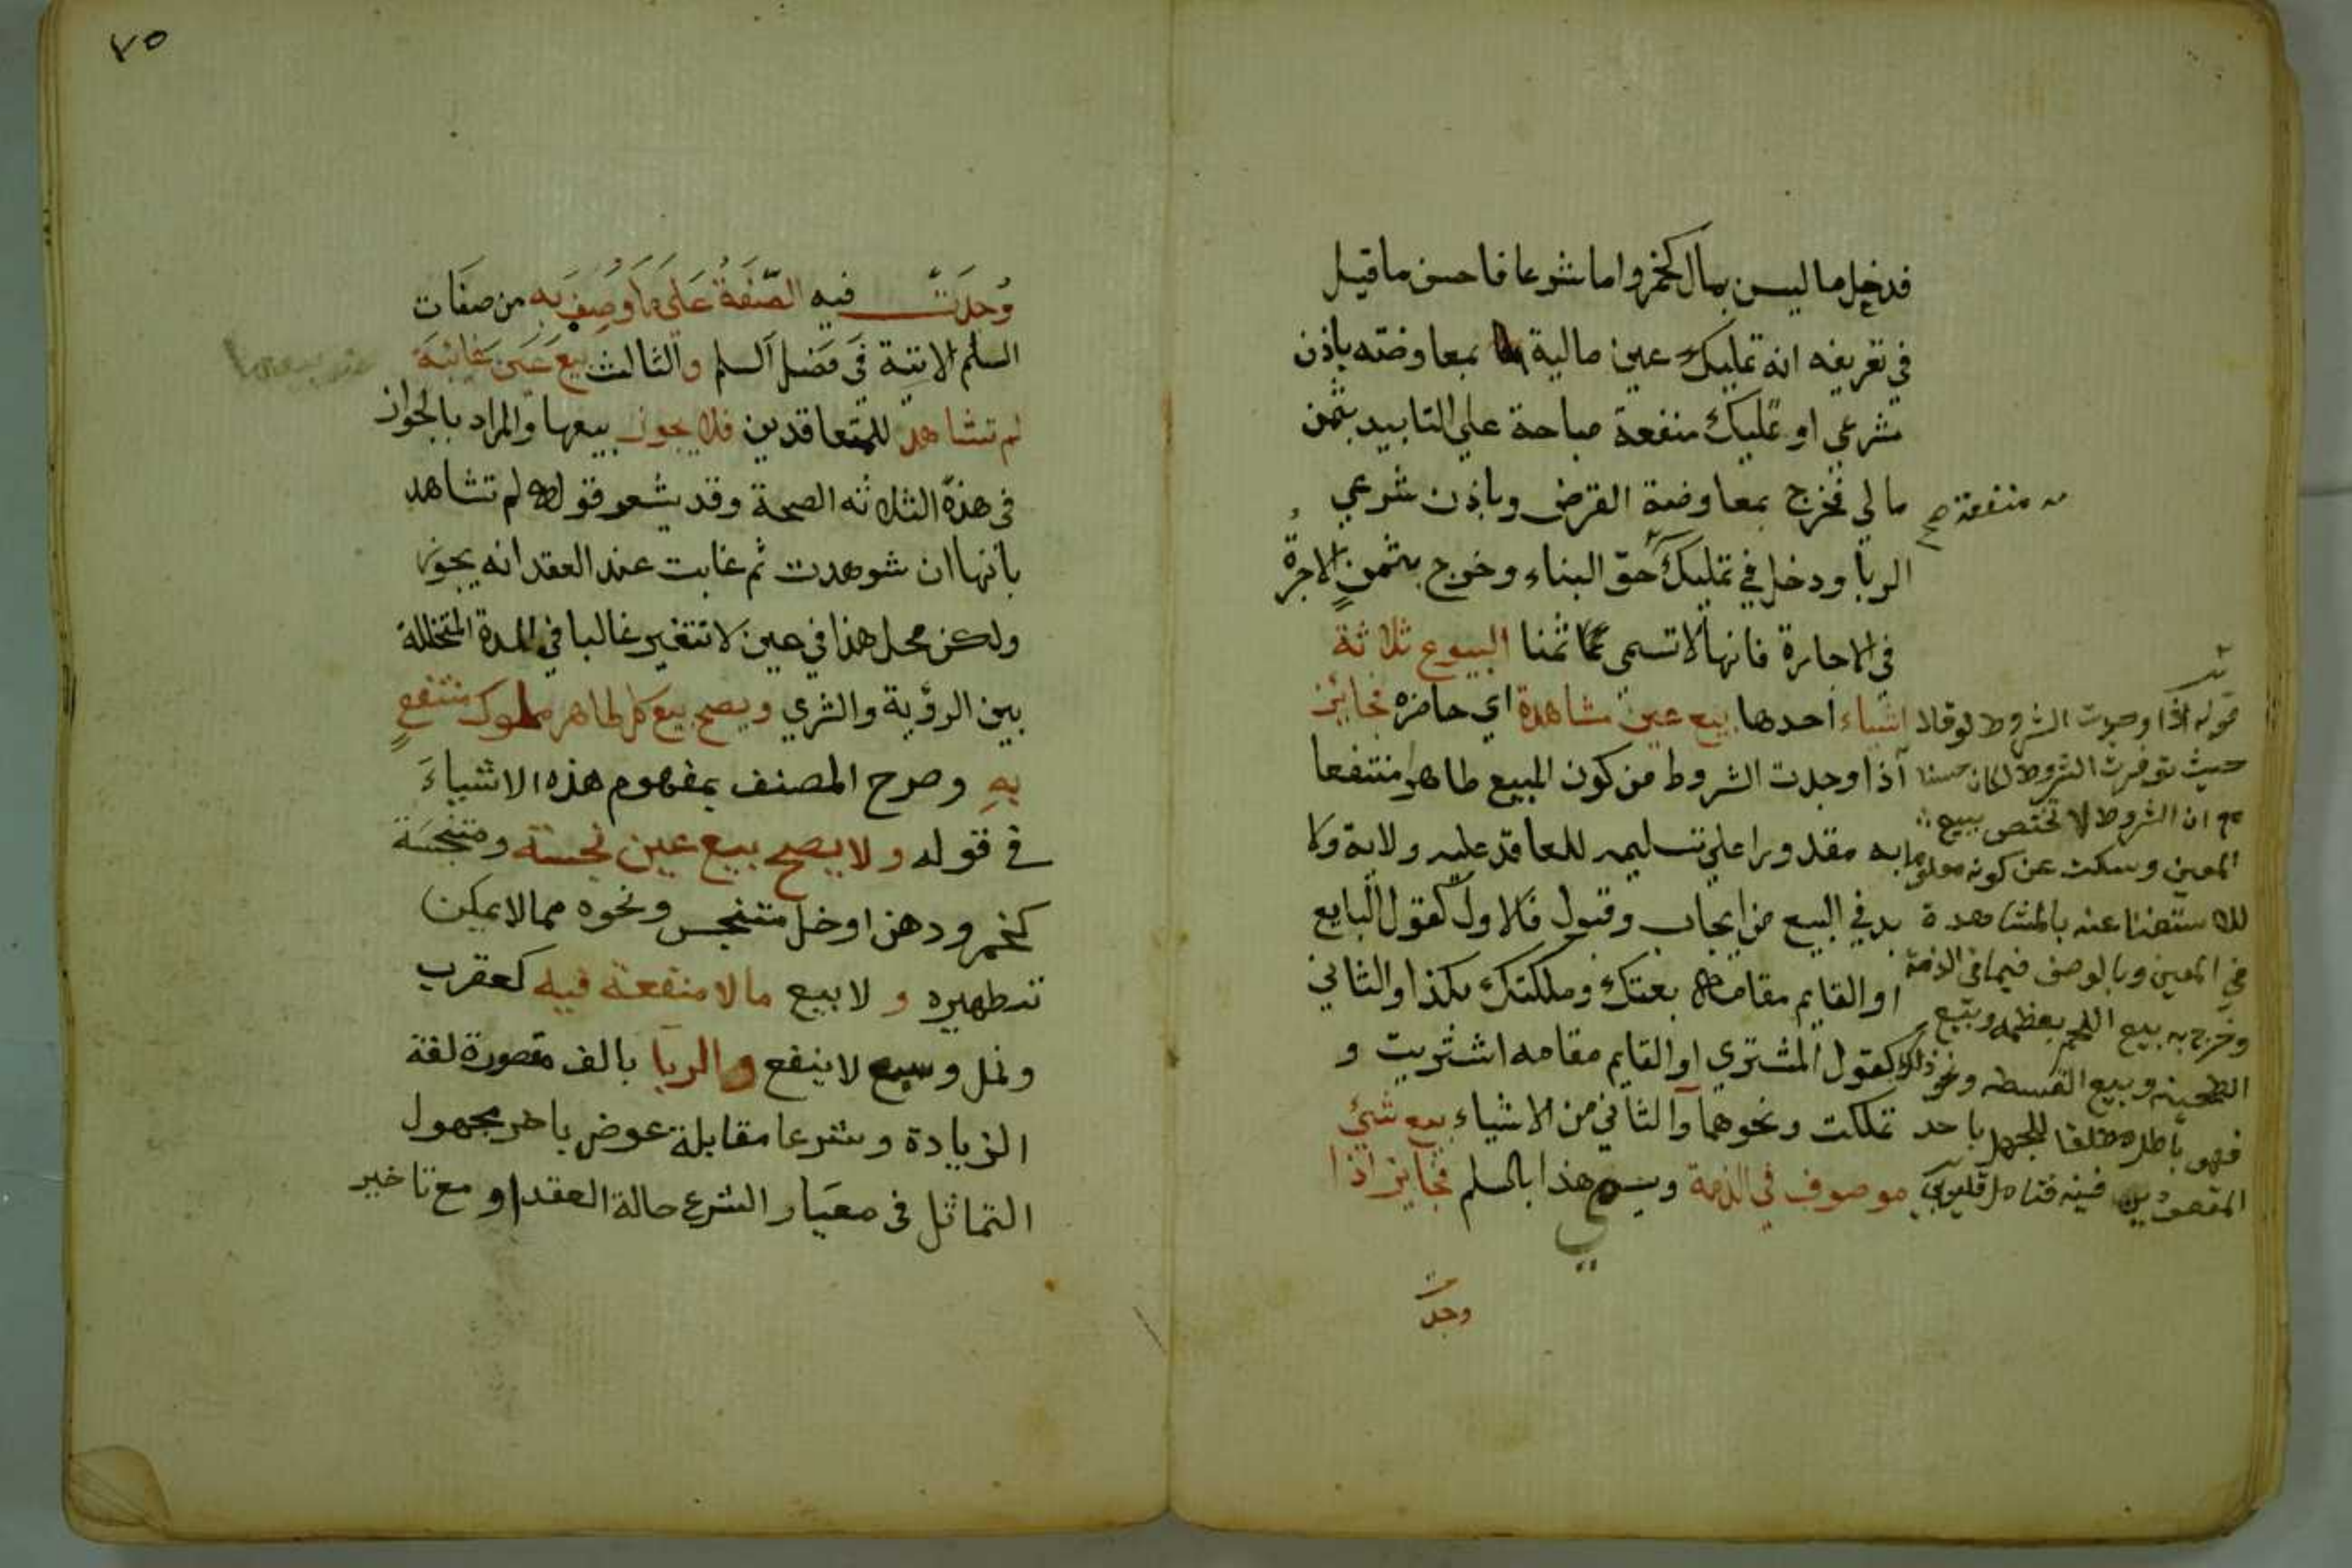 فدخل ما ليس بمال كخمر واما شرعا فاحسن ما قيل
في تعريفه انه تمليك عين مالية بمعاوضته باذن
شرعي او تمليك منفعة مباحة على التابيد بثمن
مالي فخرج بمعاوضة القرض وباذن شرعي
الربا ودخل في تمليك حق البناء وخرج بثمن الاجرة
في الاجارة فانها لا تسمى ثمنا البيوع ثلاثة
اشياء احدها بيع عين مشاهدة اي حاضره فجايز
اذا وجدت الشروط من كون المبيع طاهرا منتفعا
به مقدورا على تسليمه للعاقد عليه ولاية ولا
بد في البيع من ايجاب وقبول فالاول كقول البايع
او القايم مقامه بعتك وملكتك بكذا والثاني
كقول المشتري او القايم مقامه اشتريت و
تملكت ونحوهما والثاني من الاشياء بيع شيئ
موصوف في الذمة ويسمى هذا بالسلم فجايز اذا
وجدت
منفعة صح
قوله اذا وجدت الشروط لو قال
حيث توفرت الشروط لكان حسنا
ان الشروط لا تختص ببيع
المعين وسكت عن كونه معلوما
للاستغنا عنه بالمشاهدة
في المعين وبالوصف فيما في الذمة
وخرج به بيع اللحم بعظمه وبيع
وبيع القسطه ونحو ذلك
فهو باطل مطلقا للجهل باحد
المقصودين فيه فتامل قليوبي
٧٥
وُجدَت فيه الصّفةُ عَلَى ما وُصِف به من صفات
السلم الاتية في فصل السلم والثالث بيع عين غائبة
لم تشاهد للمتعاقدين فلا يجوز بيعها والمراد بالجواز
في هذه الثلاثه الصحة وقد يشعر قوله لم تشاهد
بانها ان شوهدت ثم غابت عند العقد انه يجوز
ولكن محل هذا في عين لا تتغير غالبا في المدة المتخللة
بين الرؤية والشري ويصح بيع كل طاهر مملوك منتفع
به وصرح المصنف بمفهوم هذه الاشياء
في قوله ولا يصح بيع عين نجسة ومتنجسة
كخمر ودهن اوخل متنجس ونحوه مما لا يمكن
تطهيره و لا بيع ما لا منفعة فيه كعقرب
ونمل وسبع لا ينفع والربا بالف مقصورة لغة
الزيادة وشرعا مقابلة عوض باخر مجهول
التماثل في معيار الشرع حالة العقد او مع تاخير